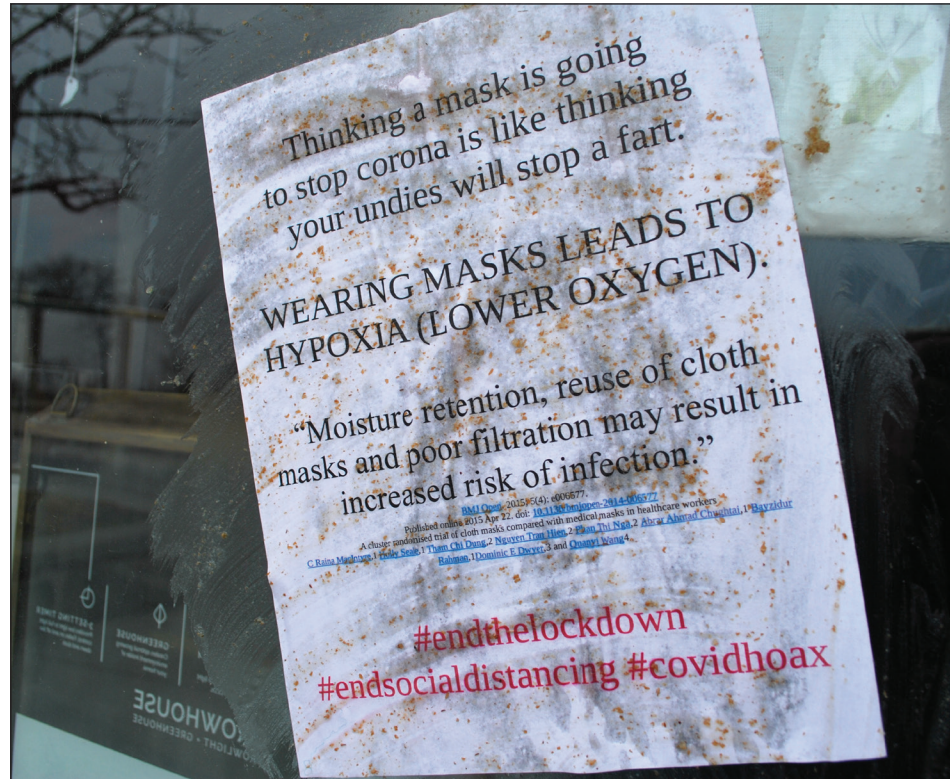 Thinking a mask is going
to stop corona is like thinking
your undies will stop a fart.
WEARING MASKS LEADS TO
HYPOXIA (LOWER OXYGEN).
“Moisture retention, reuse of cloth
masks and poor filtration may result in
increased risk of infection.”
BMJ Open. 2015; 5(4): e006577.
Published online 2015 Apr 22. doi: 10.1136/bmjopen-2014-006577
A cluster randomised trial of cloth masks compared with medical masks in healthcare workers
C Raina MacIntyre,1 Holly Seale,1 Tham Chi Dung,2 Nguyen Tran Hien,2 Phan Thi Nga,2 Abrar Ahmad Chughtai,1 Bayzidur
Rahman,1 Dominic E Dwyer,3 and Quanyi Wang4
#endthelockdown
#endsocialdistancing #covidhoax
SETTING TIMER
GREENHOUSE
OWHOUSE
OWLIGHT • GREENHOUSE